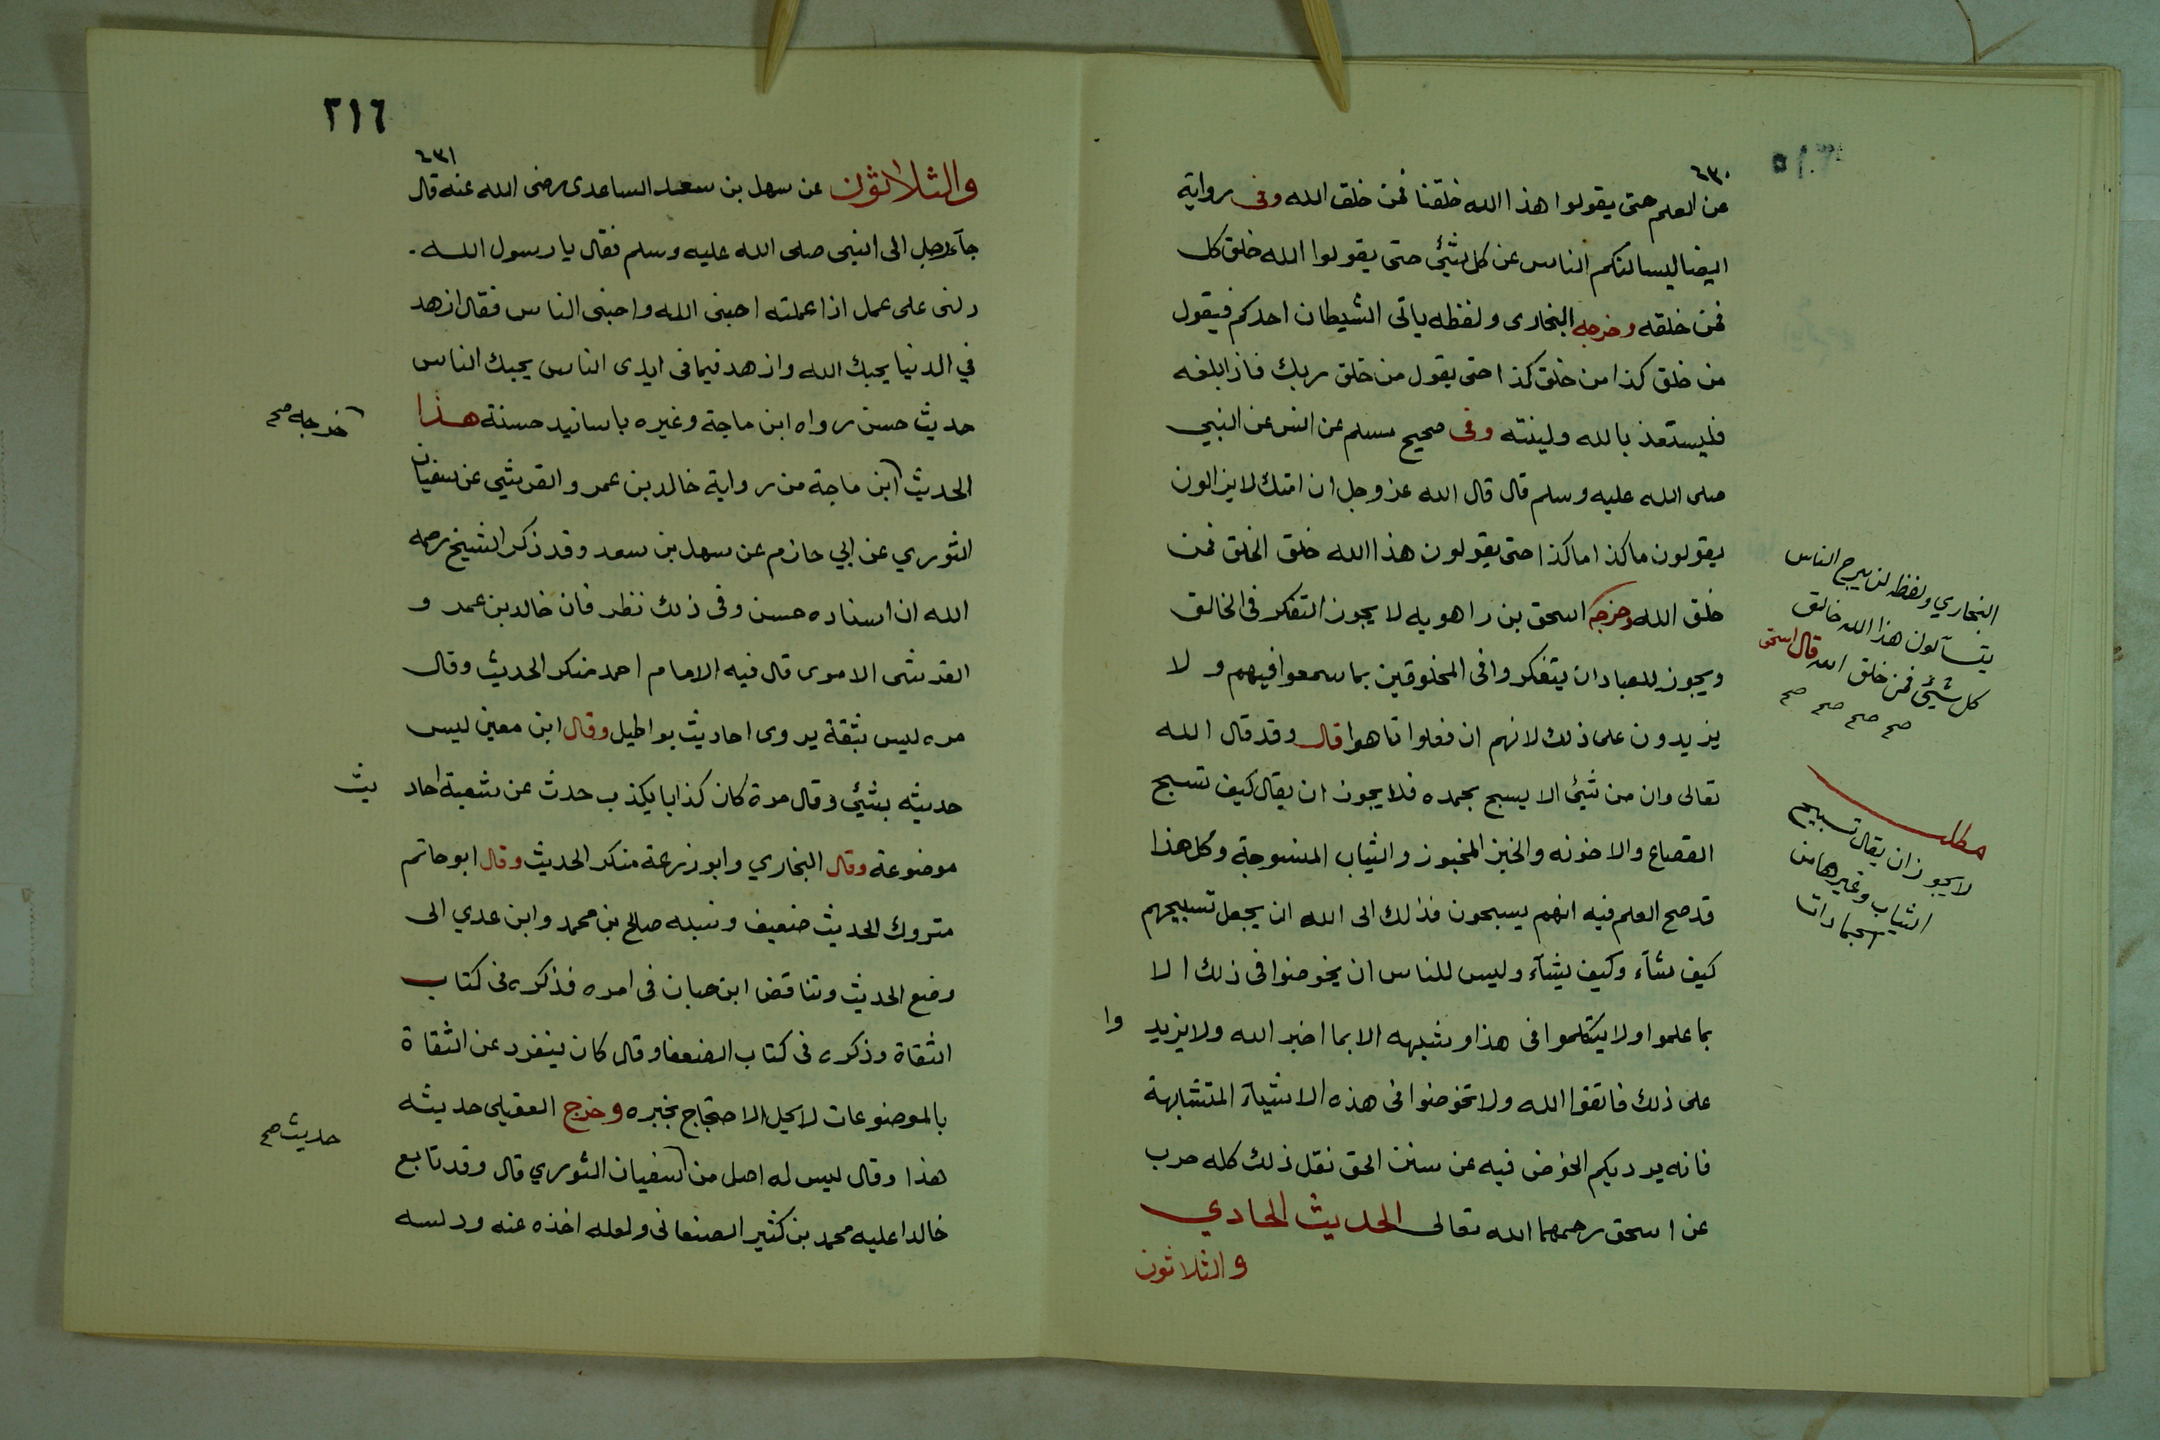 ٤٣٠
عن العلم حتى يقولوا هذا الله خلقنا فمن خلق الله وفى رواية
ايضا ليسالنكم الناس عن كل شئ حتى يقولوا الله خلق كل
فمن خلقه وخرجه البخارى ولفظه ياتى الشيطان احدكم فيقول
من خلق كذا من خلق كذا حتى يقول من خلق ربك فاذا بلغه
فليستعذ بالله ولينته وفى صحيح مسلم عن انس عن النبي
صلى الله عليه وسلم قال قال الله عز وجل ان امتك لا يزالون
يقولون ما كذا ما كذا حتى يقولون هذا الله خلق الخلق فمن
خلق الله وخرجه اسحق بن راهويه لا يجوز التفكر فى الخالق
ويجوز للعباد ان يتفكروا فى المخلوقين بما سمعوا فيهم ولا
يزيدون على ذلك لانهم ان فعلوا تاهوا قال وقد قال الله
تعالى وان من شئ الا يسبح بحمده فلا يجوز ان يقال كيف تسبح
القصاع والاخونه والخبز المخبوز والثياب المنسوجة وكل هذا
قد صح العلم فيه انهم يسبحون فذلك الى الله ان يجعل تسبيحهم
كيف شآء وكيف يشآء وليس للناس ان يخوضوا فى ذلك الا
بما علموا ولا يتكلموا فى هذا وشبهه الا بما اخبر الله ولا يزيد وا
على ذلك فاتقوا الله ولا تخوضوا فى هذه الاشيآء المتشابهة
فانه يرديكم الخوض فيه عن سنن الحق نقل ذلك كله حرب
عن اسحق رحمهما الله تعالى الحديث الحادي
والثلاثون
البخاري ولفظه لن يبرح الناس
يتسآلون هذا الله خالق
كل شئ فمن خلق الله قال اسحق
صح صح صح صح
مطلب
لا يجوز ان يقال تسبيح
الثياب وغيرها من
الجمادات
٢١٦
٤٣١
والثلاثون عن سهل بن سعد الساعدى رضى الله عنه قال
جآء رجل الى النبى صلى الله عليه وسلم فقال يا رسول الله
دلنى على عمل اذا عملته احبنى الله واحبنى الناس فقال ازهد
في الدنيا يحبك الله وازهد فيما فى ايدى الناس يحبك الناس
حديث حسن رواه ابن ماجة وغيره باسانيد حسنة هذا
الحديث ابن ماجة من رواية خالد بن عمرو القرشي عن سفيان
الثوري عن ابي حازم عن سهل بن سعد وقد ذكر الشيخ رحمه
الله ان اسناده حسن وفى ذلك نظر فان خالد بن عمر و
القرشى الاموى قال فيه الامام احمد منكر الحديث وقال
مره ليس بثقة يروى احاديث بواطيل وقال ابن معين ليس
حديثه بشئ وقال مرة كان كذابا يكذب حدث عن شعبة احاد يث
موضوعة وقال البخاري وابو زرعة منكر الحديث وقال ابو حاتم
متروك الحديث ضعيف ونسبه صالح بن محمد وابن عدي الى
وضع الحديث وتناقض ابن حبان فى امره فذكره فى كتاب
الثقاة وذكره فى كتاب الضعفا وقال كان ينفرد عن الثقاة
بالموضوعات لا يحل الاحتجاج بخبره وخرج العقيلى حديثه
هذا وقال ليس له اصل من سفيان الثوري قال وقد تابع
خالدا عليه محمد بن كثير الصنعانى ولعله اخذه عنه ودلسه
خرجه صح
حديث صح